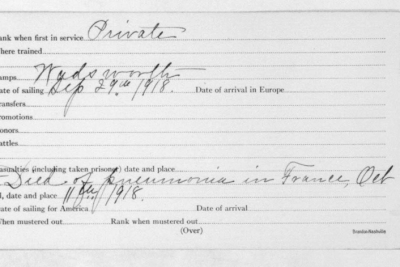 ank when first in service Private
here trained
amps Wadsworth
ate of sailing Sep 29th 1918. Date of arrival in Europe
ransfers
romotions
onors
attles
asualties (including taken prisoner) date and place
Died of pneumonia in France, Oct
d, date and place 11th 1918.
ate of sailing for America Date of arrival
When mustered out Rank when mustered out
(Over)